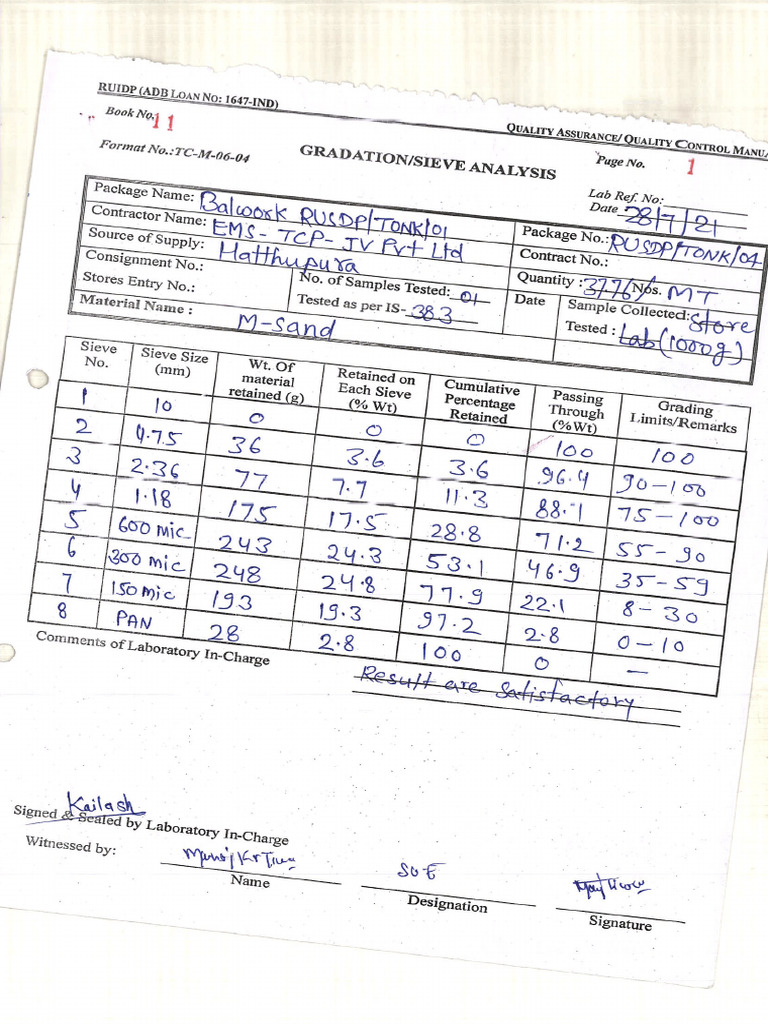 RUIDP (ADB LOAN NO: 1647-IND)
QUALITY ASSURANCE/ QUALITY CONTROL MANUA
Book No. 11
Format No.:TC-M-06-04
GRADATION/SIEVE ANALYSIS
Page No. 1
Lab Ref. No:
Date 28/7/21
Package Name: Balwork RUSDP/TONK/01
Package No.: RUSDP/TONK/04
Contractor Name: EMS-TCP-JV Pvt Ltd
Contract No.:
Source of Supply: Hatthupura
Quantity : Nos. MT
Consignment No.:
No. of Samples Tested: 01
Date Sample Collected: Store
Stores Entry No.:
Tested as per IS- 383
Tested : Lab (1000g)
Material Name : M-sand
Sieve No. Sieve Size (mm) Wt. Of material retained (g) Retained on Each Sieve (% Wt) Cumulative Percentage Retained Passing Through (%Wt) Grading Limits/Remarks
1 10 0 0 0 100 100
2 4.75 36 3.6 3.6 96.4 90-100
3 2.36 77 7.7 11.3 88.7 75-100
4 1.18 175 17.5 28.8 71.2 55-90
5 600 mic 243 24.3 53.1 46.9 35-59
6 300 mic 248 24.8 77.9 22.1 8-30
7 150 mic 193 19.3 97.2 2.8 0-10
8 PAN 28 2.8 100 0 —
Comments of Laboratory In-Charge
Result are satisfactory
Kailash
Signed & Sealed by Laboratory In-Charge
Witnessed by:
Name
Designation
Signature